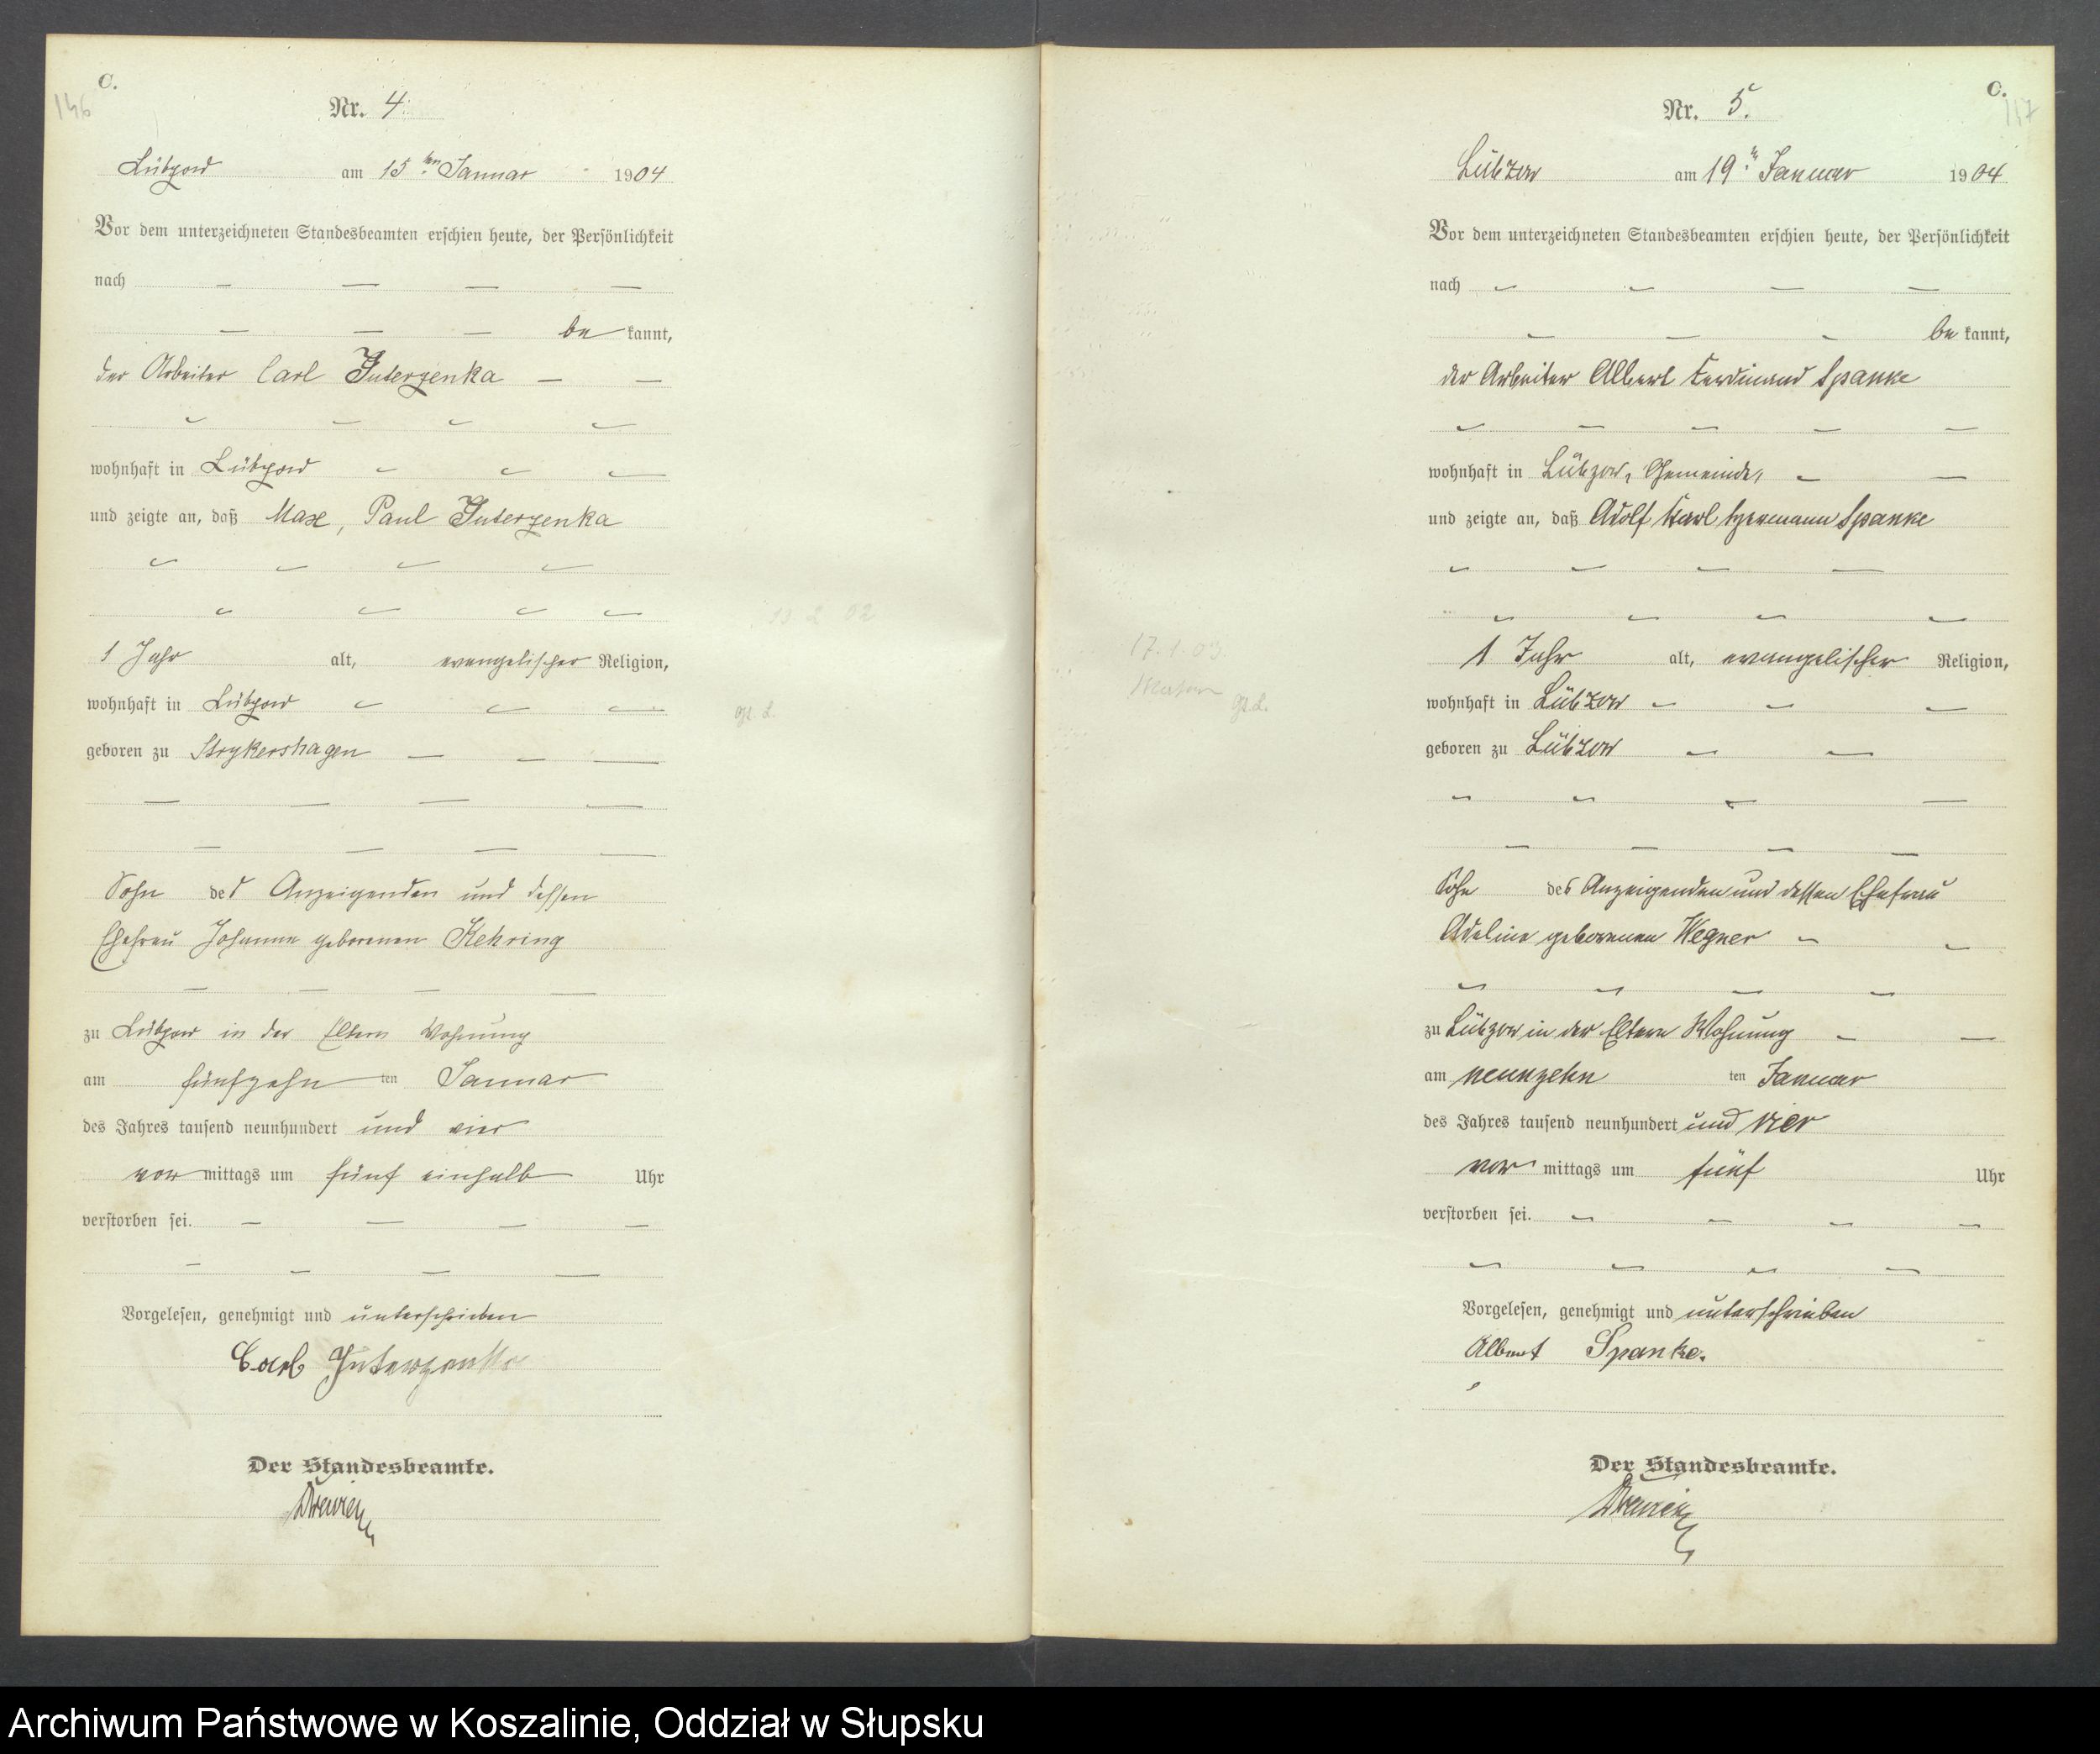 C.
146
Nr. 4.
Lübzow am 15ten Januar 1904
Vor dem unterzeichneten Standesbeamten erschien heute, der Persönlichkeit
nach — — — —
— — — be kannt,
der Arbeiter Carl Juterzenka — —
wohnhaft in Lübzow
und zeigte an, daß Max, Paul Juterzenka
1 Jahr alt, evangelischer Religion,
wohnhaft in Lübzow
geboren zu Strykershagen — — —
Sohn des Anzeigenden und dessen
Ehefrau Johanna geborenen Kehring
zu Lübzow in der Eltern Wohnung
am fünfzehn ten Januar
des Jahres tausend neunhundert und vier
vor mittags um fünf einhalb Uhr
verstorben sei. — — — —
Vorgelesen, genehmigt und unterschrieben
Carl Juterzenka
Der Standesbeamte.
13 2 02
gt. L.
C.
117
Nr. 5.
Lübzow am 19ten Januar 1904
Vor dem unterzeichneten Standesbeamten erschien heute, der Persönlichkeit
nach — — — —
— — — be kannt,
der Arbeiter Albert Ferdinand Spanke
wohnhaft in Lübzow, Gemeinde, — —
und zeigte an, daß Adolf Karl Hermann Spanke
1 Jahr alt, evangelischer Religion,
wohnhaft in Lübzow — — —
geboren zu Lübzow — —
Sohn des Anzeigenden und dessen Ehefrau
Adeline geborenen Wegner — —
zu Lübzow in der Eltern Wohnung — —
am neunzehn ten Januar
des Jahres tausend neunhundert und vier
vor mittags um fünf Uhr
verstorben sei. — — — —
Vorgelesen, genehmigt und unterschrieben
Albert Spanke.
Der Standesbeamte.
17.1.03.
gt. L.
Archiwum Państwowe w Koszalinie, Oddział w Słupsku